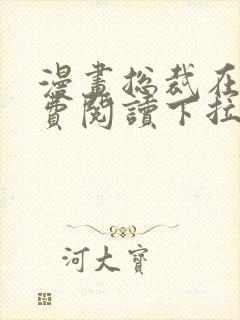 漫畫總裁在
費閱讀下拉
河大寶